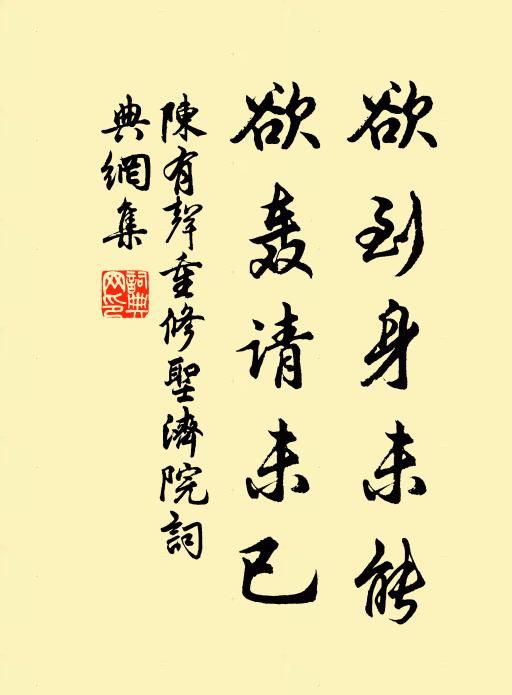 欲到身未能
欲轰请未已
陳有聲重修聖濟院詞
典網集
詞典网印